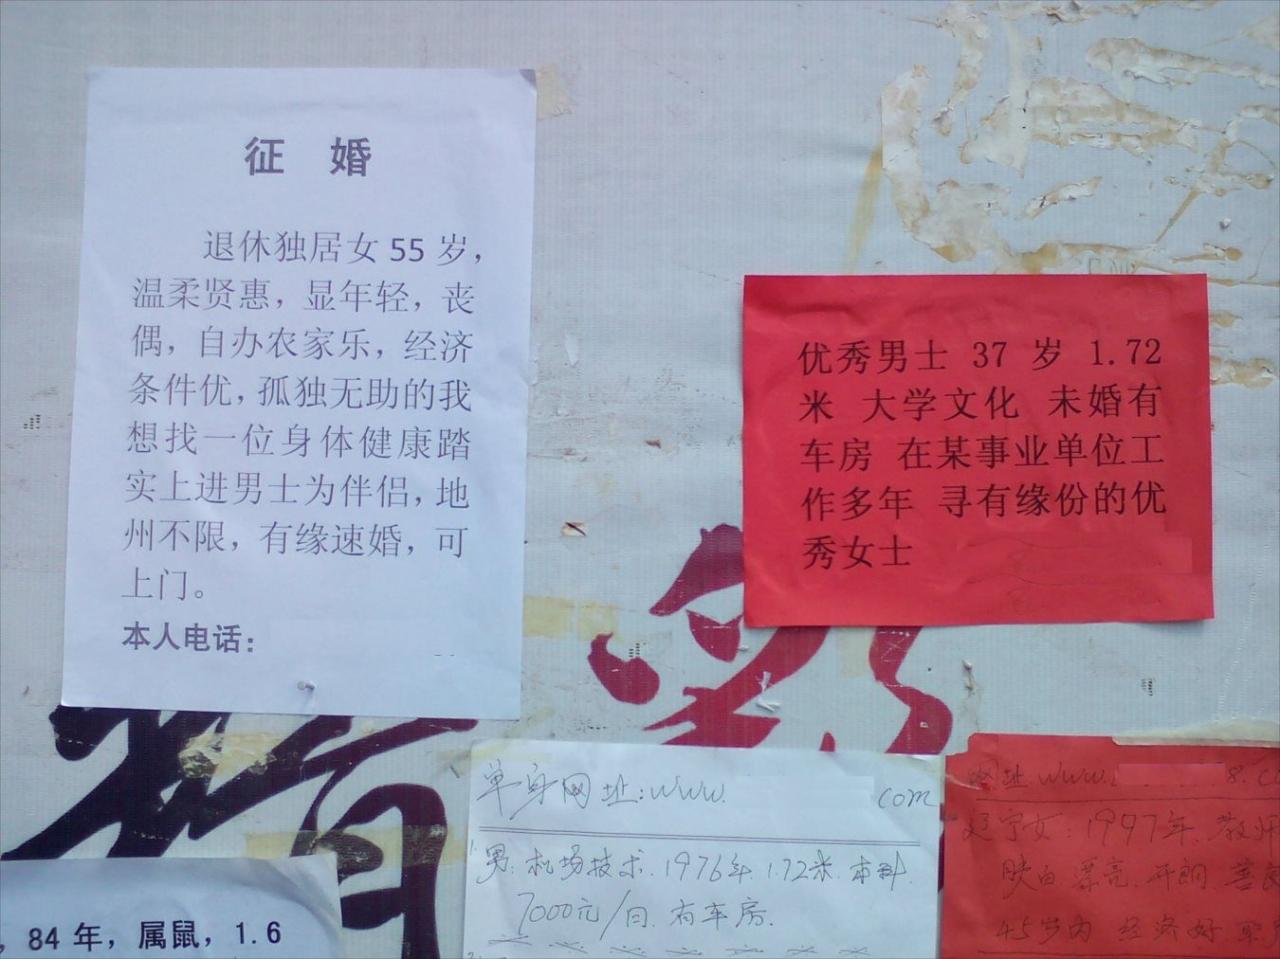 征 婚
退休独居女 55 岁，
温柔贤惠，显年轻，丧
偶，自办农家乐，经济
条件优，孤独无助的我
想找一位身体健康踏
实上进男士为伴侣，地
州不限，有缘速婚，可
上门。
本人电话：
优秀男士 37 岁 1.72
米 大学文化 未婚有
车房 在某事业单位工
作多年 寻有缘份的优
秀女士
单身网址:www. com
男.机场技术.1976年.1.72米.本科.
7000元/月.有车房.
网址.www. 8.c
辽宁女:1997年.教师
肤白.漂亮.开朗.善良
45岁内 经济好
，84 年，属鼠，1.6